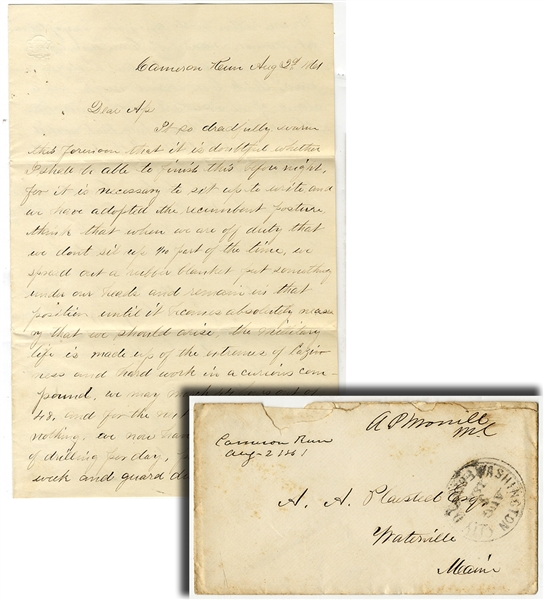 Cameron Run Aug 2d 1861
Dear Ap
It so dreadfully warm
this forenoon that it is doubtful whether
I shall be able to finish this before night,
for it is necessary to sit up to write and
we have adopted the recumbent posture
think that when we are off duty that
we dont sit up 1/10 part of the time, we
spread out a rubber blanket put something
under our heads and remain in that
position until it becomes absolutely necess
ry that we should arise, the military
life is made up of the extremes of lazi
ness and hard work in a curious com
pound. we may
48, and for the next
nothing. we now have
of drilling per day,
week and guard du
A P Morrill
M C
Cameron Run
Aug - 2 1861
WASHINGTON
AUG
A. A. Plaisted Esq.
Waterville
Maine